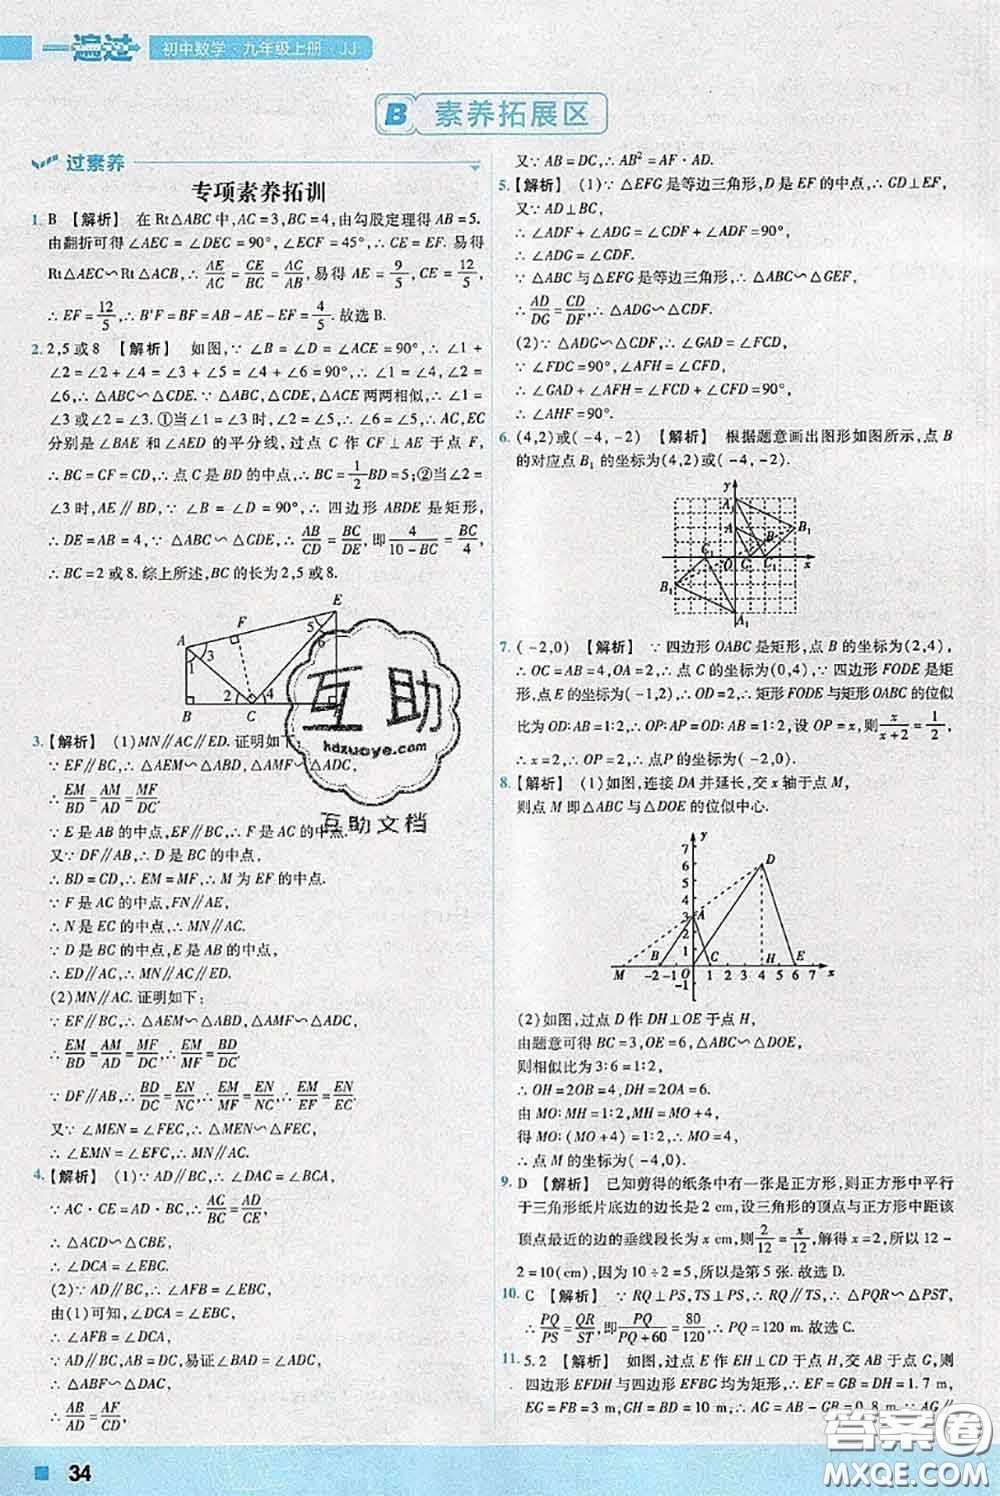 一遍过 初中数学·九年级上册·JJ
B 素养拓展区
过素养
专项素养拓训
1. B 【解析】 在 Rt△ABC 中,AC=3,BC=4,由勾股定理得 AB=5.
由翻折可得∠AEC=∠DEC=90°,∠ECF=45°,∴CE=EF.易得
Rt△AEC∽Rt△ACB,∴AE/AC=CE/BC=AC/AB,易得 AE=9/5,CE=12/5,
∴EF=12/5,∴B'F=BF=AB-AE-EF=4/5.故选 B.
2. 2,5或8 【解析】 如图,∵∠B=∠D=∠ACE=90°,∴∠1+
∠2=∠2+∠4=∠3+∠5=∠3+∠6=90°,∴∠1=∠4,∠2=
∠6,∴△ABC∽△CDE.∵△ABC,△CDE,△ACE 两两相似,∴∠1=
∠3 或∠2=∠3.①当∠1=∠3时,∠2=∠5,∴∠6=∠5,∴AC,EC
分别是∠BAE 和∠AED 的平分线,过点 C 作 CF⊥AE 于点 F,
∴BC=CF=CD,∴点 C 是 BD 的中点,∴BC=1/2BD=5;②当∠2=
∠3时,AE∥BD,∵∠B=∠D=90°,∴四边形 ABDE 是矩形,
∴DE=AB=4.∵△ABC∽△CDE,∴AB/CD=BC/DE,即4/(10-BC)=BC/4,
∴BC=2 或 8.综上所述,BC 的长为 2,5 或 8.
A F E 1 2 3 4 5 6 B C
3. 【解析】 (1)MN∥AC∥ED.证明如下:
∵EF∥BC,∴△AEM∽△ABD,△AMF∽△ADC,
∴EM/BD=AM/AD=MF/DC.
∵E 是 AB 的中点,EF∥BC,∴F 是 AC 的中点.
又∵DF∥AB,∴D 是 BC 的中点,
∴BD=CD,∴EM=MF,∴M 为 EF 的中点.
∵F 是 AC 的中点,FN∥AE,
∴N 是 EC 的中点,
∵D 是 BC 的中点,E 是 AB 的中点,
∴ED∥AC,∴MN∥AC∥ED.
(2)MN∥AC.证明如下:
∵EF∥BC,∴△AEM∽△ABD,△AMF∽△ADC,
∴EM/BD=AM/AD=MF/DC,∴EM/MF=BD/DC.
∵DF∥AB,∴BD/DC=EN/NC,∴EM/MF=EN/NC,∴EM/EF=EN/EC.
又∵∠MEN=∠FEC,∴△MEN∽△FEC,
∴∠EMN=∠EFC,∴MN∥AC.
4. 【解析】 (1)∵AD∥BC,∴∠DAC=∠BCA,
∵AC·CE=AD·BC,∴AC/BC=AD/CE,
∴△ACD∽△CBE,
∴∠DCA=∠EBC.
(2)∵AD∥BC,∴∠AFB=∠EBC,
由(1)可知,∠DCA=∠EBC,
∴∠AFB=∠DCA.
∵AD∥BC,AB=DC,易证∠BAD=∠ADC,
∴△ABF∽△DAC,
∴AB/AD=AF/CD,
又∵AB=DC,∴AB²=AF·AD.
5. 【解析】 (1)∵△EFG 是等边三角形,D 是 EF 的中点,∴GD⊥EF,
又∵AD⊥BC,
∴∠ADF+∠CDF=∠ADF+∠ADG=90°,
∴∠ADG=∠CDF.
∵△ABC 与△EFG 是等边三角形,∴△ABC∽△GEF,
∴AD/DG=CD/DF,∴△ADG∽△CDF.
(2)∵△ADG∽△CDF,∴∠GAD=∠FCD,
∵∠FDC=90°,∠AFH=∠CFD,
∴∠GAD+∠AFH=∠FCD+∠CFD=90°,
∴∠AHF=90°,∴AG⊥CH.
6. (4,2)或(-4,-2) 【解析】 根据题意画出图形如图所示,点 B
的对应点 B₁ 的坐标为(4,2)或(-4,-2).
y A₁ A B B₁ C₁ O C C₁ x B₁ A₁
7. (-2,0) 【解析】 ∵四边形 OABC 是矩形,点 B 的坐标为(2,4),
∴OC=AB=4,OA=2,∴点 C 的坐标为(0,4),∵四边形 FODE 是矩
形,点 E 的坐标为(-1,2),∴OD=2,∴矩形 FODE 与矩形 OABC 的位似
比为 OD:AB=1:2,∴OP:AP=OD:AB=1:2,设 OP=x,则x/(x+2)=1/2,
∴x=2,∴OP=2,∴点P的坐标为(-2,0).
8. 【解析】 (1)如图,连接 DA 并延长,交 x 轴于点 M,
则点 M 即△ABC 与△DOE 的位似中心.
y 7 6 5 4 3 2 1 A D M -2 -1 O 1 2 3 4 5 6 7 x C H E -1
(2)如图,过点 D 作 DH⊥OE 于点 H,
由题意可得 BC=3,OE=6,△ABC∽△DOE,
则相似比为 3:6=1:2,
∴OH=2OB=4,DH=2OA=6.
由 MO:MH=1:2,MH=MO+4,
得 MO:(MO+4)=1:2,∴MO=4,
∴点 M 的坐标为(-4,0).
9. D 【解析】 已知剪得的纸条中有一张是正方形,则正方形中平行
于三角形纸片底边的边长是 2 cm,设三角形的顶点与正方形中距该
顶点最近的边的垂线段长为 x cm,则2/12=x/12,解得 x=2,所以 12-
2=10(cm),因为 10÷2=5,所以是第 5 张.故选 D.
10. C 【解析】 ∵RQ⊥PS,TS⊥PS,∴RQ∥TS,∴△PQR∽△PST,
∴PQ/PS=QR/ST,即PQ/(PQ+60)=80/120,∴PQ=120 m.故选 C.
11. 5.2 【解析】 如图,过点 E 作 EH⊥CD 于点 H,交 AB 于点 G,则
四边形 EFDH 与四边形 EFBG 均为矩形,∴EF=GB=DH=1.7 m,
EG=FB=8 m,GH=BD=10 m,∴AG=AB-GB=0.8 m,∵AG∥
34
互助
hdzuoye.com
互助文档
答案圈
MXQE.COM